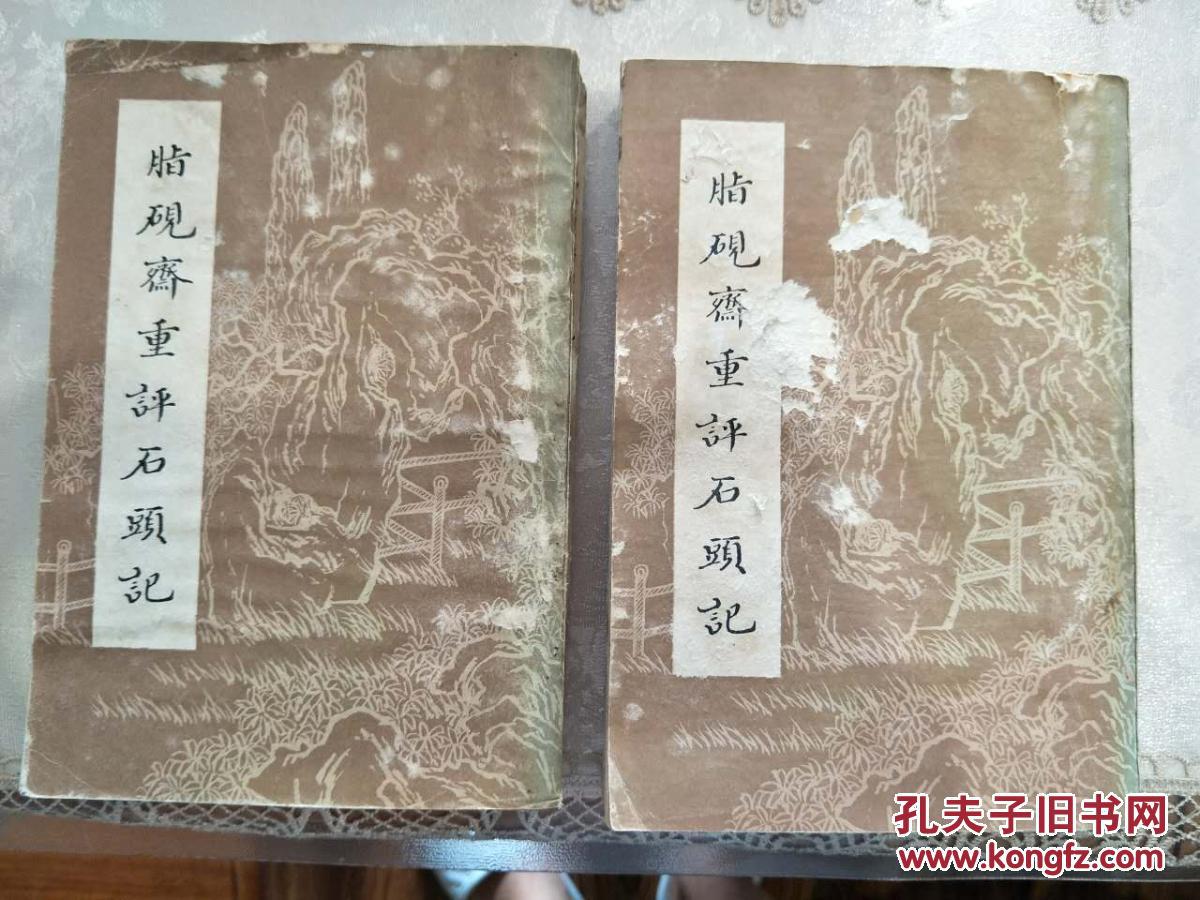 脂硯齋重評石頭記
脂硯齋重評石頭記
孔夫子旧书网
www.kongfz.com